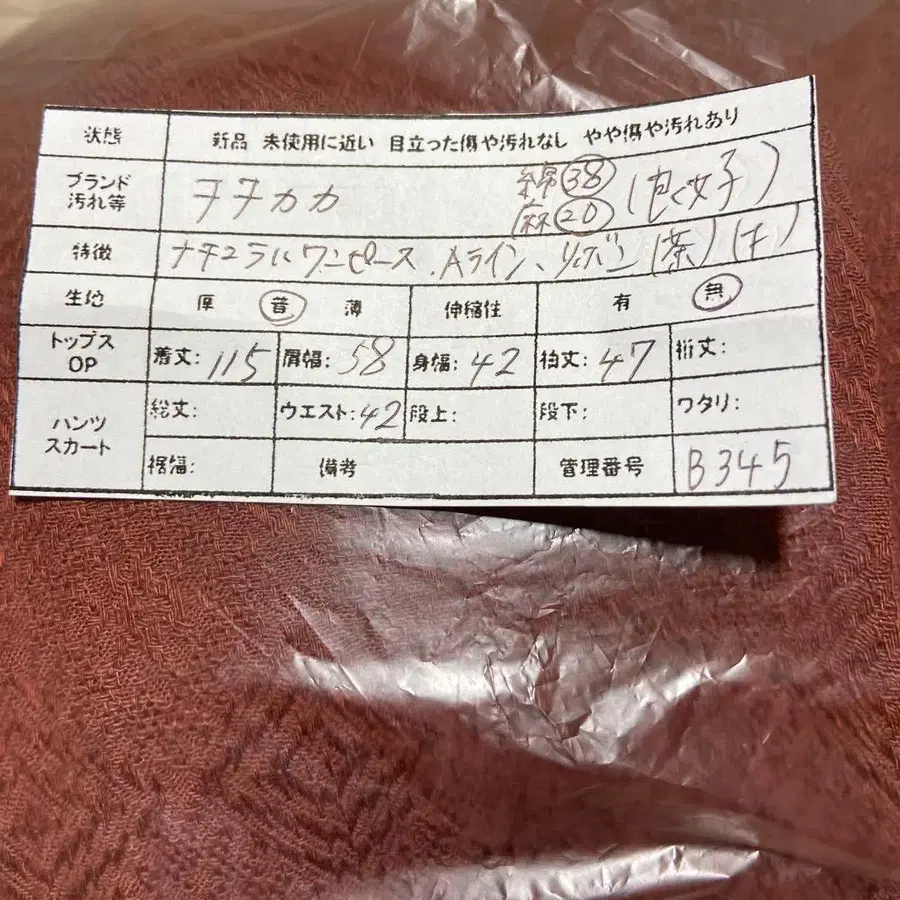 状態 新品 未使用に近い 目立った傷や汚れなし やや傷や汚れあり
ブランド 汚れ等 チチカカ 綿38 麻20
特徴 ナチュラルワンピース、Aライン、リボン(茶)
生地 厚 普 薄 伸縮性 有 無
トップス OP 着丈:115 肩幅:58 身幅:42 袖丈:47 裄丈:
パンツ スカート 総丈: ウエスト:42 股上: 股下: ワタリ:
裾幅: 備考 管理番号 B345